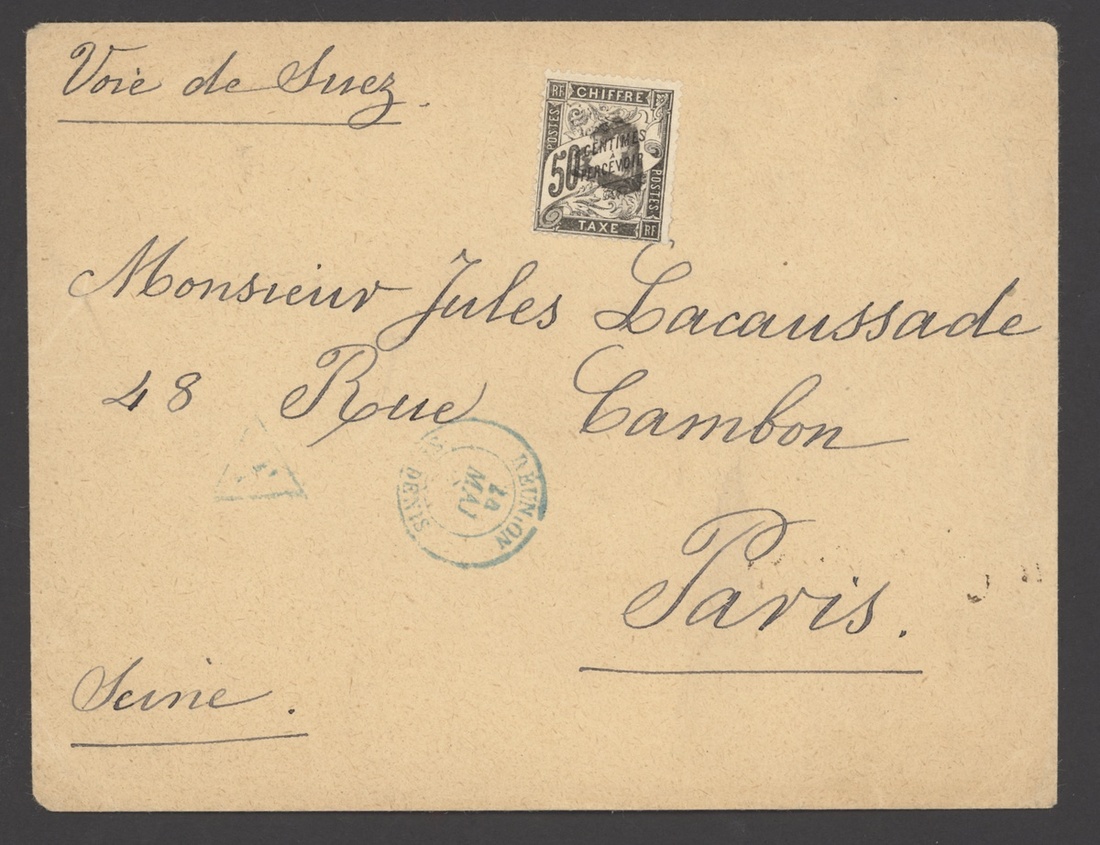 Voie de Suez.
RF CHIFFRE
POSTES
50 CENTIMES
À
PERCEVOIR
POSTES
TAXE RF
Monsieur Jules Lacaussade
48 Rue Cambon
RÉUNION
MAI
ST DENIS
Paris.
Seine.